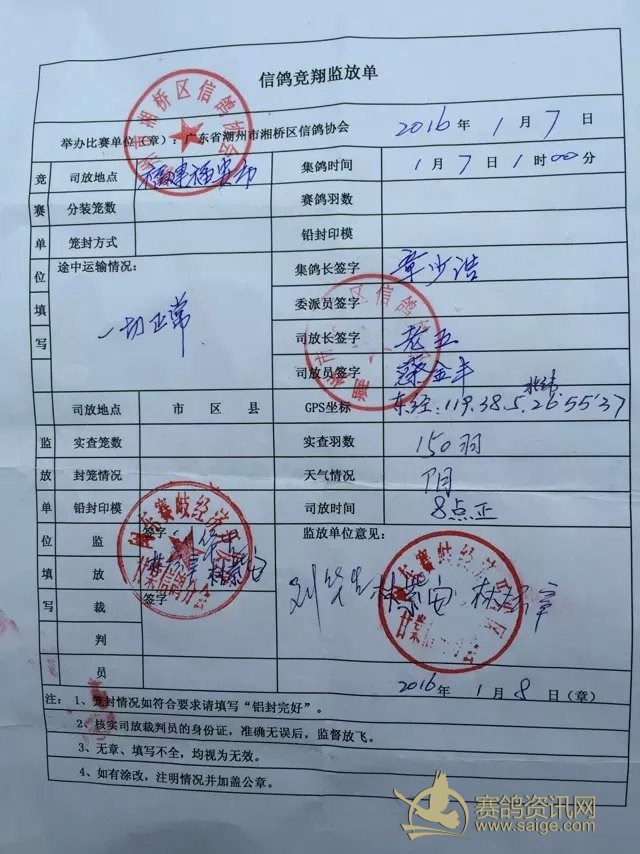 信鸽竞翔监放单
举办比赛单位（章）：广东省潮州市湘桥区信鸽协会 2016年1月7日
竞赛单位填写
司放地点 福建福安市 集鸽时间 1月7日1时00分
分装笼数 赛鸽羽数
笼封方式 铅封印模
途中运输情况： 集鸽长签字 章少浩
一切正常 委派员签字
司放长签字 老五
司放员签字 蔡金丰
司放地点 市 区 县 GPS坐标 东经：119.38.5. 北纬 26.55'37
监放单位填写
实查笼数 实查羽数 150羽
封笼情况 天气情况 阴
铅封印模 司放时间 8点正
监放裁判员 签字： 监放单位意见：
签字
2016年1月8日（章）
注：1、笼封情况如符合要求请填写“铝封完好”。
2、核实司放裁判员的身份证，准确无误后，监督放飞。
3、无章、填写不全，均视为无效。
4、如有涂改，注明情况并加盖公章。
赛鸽资讯网
www.saige.com